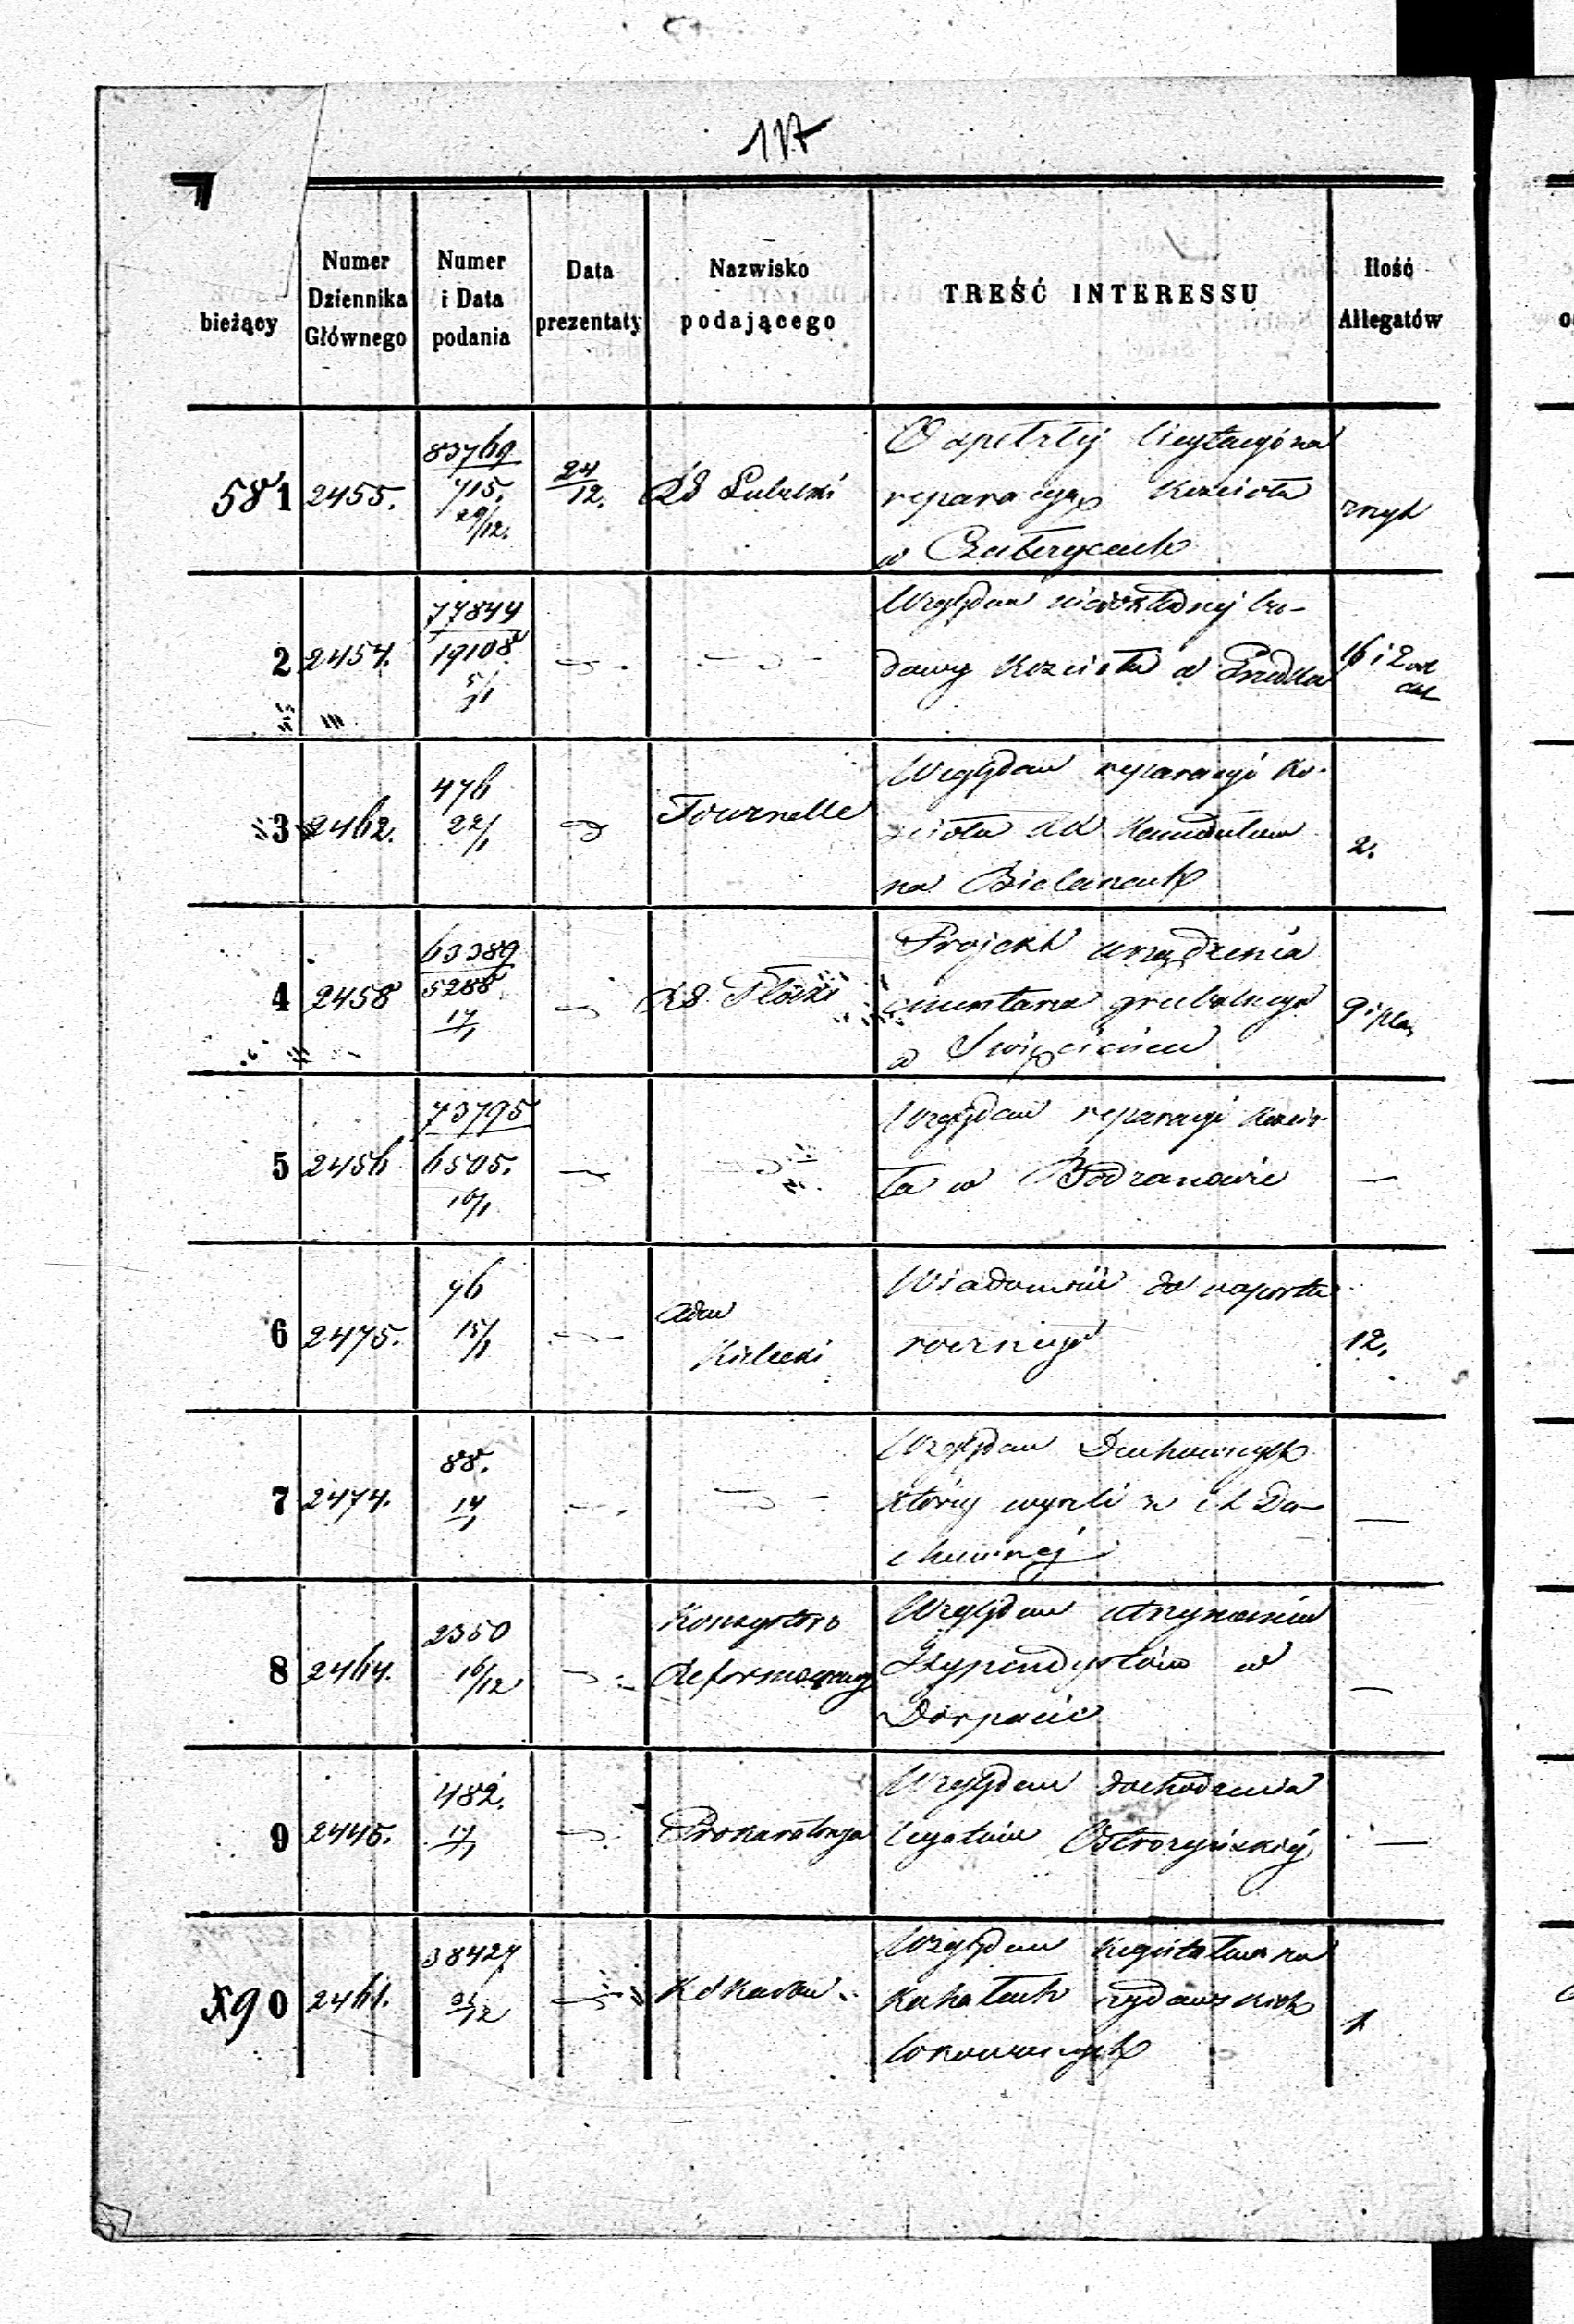 117
bieżący
Numer Dziennika Głównego
Numer i Data podania
Data prezentaty
Nazwisko podającego
TREŚĆ INTERESSU
Ilość Allegatów
581 2455. 83769 715. 29/12. 24/12. RG Lubelski
O spełzłej licytacyi na
reparacyą Kościoła
w
2 2457. 77844 19108 5/1
Względem niedokładnej bu-
dowy Kościoła w
16 i 2
3 2462. 476 22/1 Tournelle
Względem reparacyi Ko-
ścioła Kamedułów
na Bielanach
2.
4 2458 63389 5288 17/1 RG Płocki
Projekt urządzenia
cmentarza grzebalnego
w
9 i plan
5 2456 73795 6505. 16/1
Względem reparacyi Kościo-
ła w Bodzanowie
—
6 2475. 76 15/1 Adm Kielecki
Wiadomość do raportu
rocznego
12.
7 2474. 88. 14/1
Względem Duchownych
którzy wyszli z
—
8 2464. 2350 16/12 Konsystorz Reformowany
Względem utrzymania
Stypendystów w
Dorpacie
—
9 2445. 482. 17/1 Prokuratorya
Względem dochodzenia
legatów
—
590 2461. 38427 31/12
Względem Kapitałów na
Kahałach żydowskich
lokowanych
1